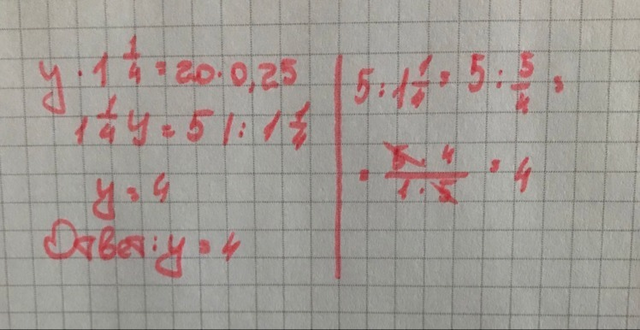 y · 1 1/4 = 20 · 0,25
1 1/4 y = 5 | : 1 1/4
y = 4
Ответ: y = 4
5 : 1 1/4 = 5 : 5/4 =
= 5 · 4 / 1 · 5 = 4